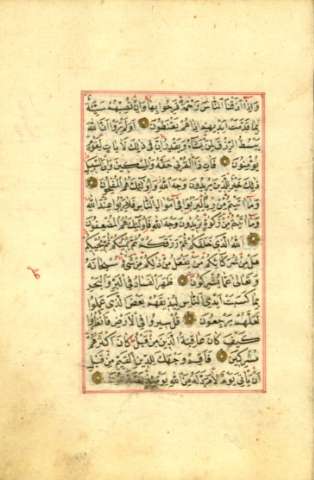 وَاِذَٓا اَذَقْنَا النَّاسَ رَحْمَةً فَرِحُوا بِهَا وَاِنْ تُصِبْهُمْ سَيِّئَةٌ
بِمَا قَدَّمَتْ اَيْدِيهِمْ اِذَا هُمْ يَقْنَطُونَ اَوَلَمْ يَرَوْا اَنَّ اللهَ
يَبْسُطُ الرِّزْقَ لِمَنْ يَشَٓاءُ وَيَقْدِرُ اِنَّ فِى ذٰلِكَ لَاٰيَاتٍ لِقَوْمٍ
يُؤْمِنُونَ فَاٰتِ ذَا الْقُرْبٰى حَقَّهُ وَالْمِسْكِينَ وَابْنَ السَّبِيلِ
ذٰلِكَ خَيْرٌ لِلَّذِينَ يُرِيدُونَ وَجْهَ اللهِ وَاُولٰٓئِكَ هُمُ الْمُفْلِحُونَ
وَمَٓا اٰتَيْتُمْ مِنْ رِبًا لِيَرْبُوَا فِٓى اَمْوَالِ النَّاسِ فَلَا يَرْبُوا عِنْدَ اللهِ
وَمَٓا اٰتَيْتُمْ مِنْ زَكٰوةٍ تُرِيدُونَ وَجْهَ اللهِ فَاُولٰٓئِكَ هُمُ الْمُضْعِفُونَ
اَللهُ الَّذِى خَلَقَكُمْ ثُمَّ رَزَقَكُمْ ثُمَّ يُمِيتُكُمْ ثُمَّ يُحْيِيكُمْ
هَلْ مِنْ شُرَكَٓائِكُمْ مَنْ يَفْعَلُ مِنْ ذٰلِكُمْ مِنْ شَىْءٍ سُبْحَانَهُ
وَتَعَالٰى عَمَّا يُشْرِكُونَ ظَهَرَ الْفَسَادُ فِى الْبَرِّ وَالْبَحْرِ
بِمَا كَسَبَتْ اَيْدِى النَّاسِ لِيُذِيقَهُمْ بَعْضَ الَّذِى عَمِلُوا
لَعَلَّهُمْ يَرْجِعُونَ قُلْ سِيرُوا فِى الْاَرْضِ فَانْظُرُوا
كَيْفَ كَانَ عَاقِبَةُ الَّذِينَ مِنْ قَبْلُ كَانَ اَكْثَرُهُمْ
مُشْرِكِينَ فَاَقِمْ وَجْهَكَ لِلدِّينِ الْقَيِّمِ مِنْ قَبْلِ
اَنْ يَاْتِىَ يَوْمٌ لَا مَرَدَّ لَهُ مِنَ اللهِ يَوْمَئِذٍ يَصَّدَّعُونَ